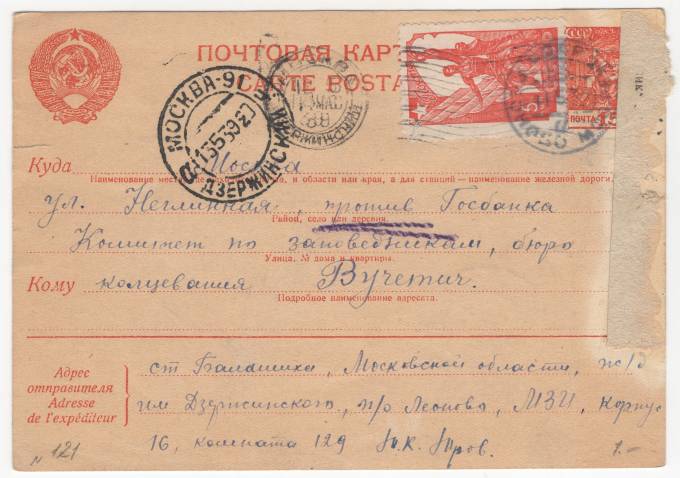 ПОЧТОВАЯ КАР
CARTE POSTA
МОСКВА-9
ДЗЕРЖИНСК
ПОЧТА
Куда Москва
Наименование места, и области или края, а для станций—наименование железной дороги.
ул. Неглинная, против Госбанка
Район, село или деревня.
Комитет по заповедникам, бюро
Улица, № дома и квартиры.
Кому кольцевания Вучетич.
Подробное наименование адресата.
Адрес отправителя
Adresse de l'expéditeur
ст Балашиха, Московской области, ж/д
им Дзержинского, п/о Леоново, МЗИ, корпус
16, комната 129
N 121
1.-